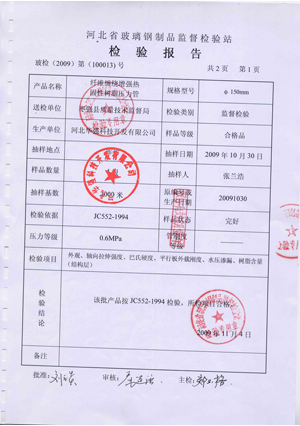 河北省玻璃钢制品监督检验站
检 验 报 告
玻检（2009）第（100013）号
共 2 页 第 1 页
产品名称 纤维缠绕增强热固性树脂压力管 规格型号 φ 150mm
送检单位 枣强县质量技术监督局 检验类别 监督检验
生产单位 河北华强科技开发有限公司 样品等级 合格品
抽样地点 抽样日期 2009 年 10 月 30 日
样品数量 抽样人 张兰浩
抽样基数 原编号或生产日期 20091030
检验依据 JC552-1994 样品状态 完好
压力等级 0.6MPa 管刚度等级
检验项目 外观、轴向拉伸强度、巴氏硬度、平行板外载刚度、水压渗漏、树脂含量
（结构层）
检验结论 该批产品按 JC552-1994 检验，所检项目合格。
2009 年 11 月 4 日
备注
批准： 审核： 主检：